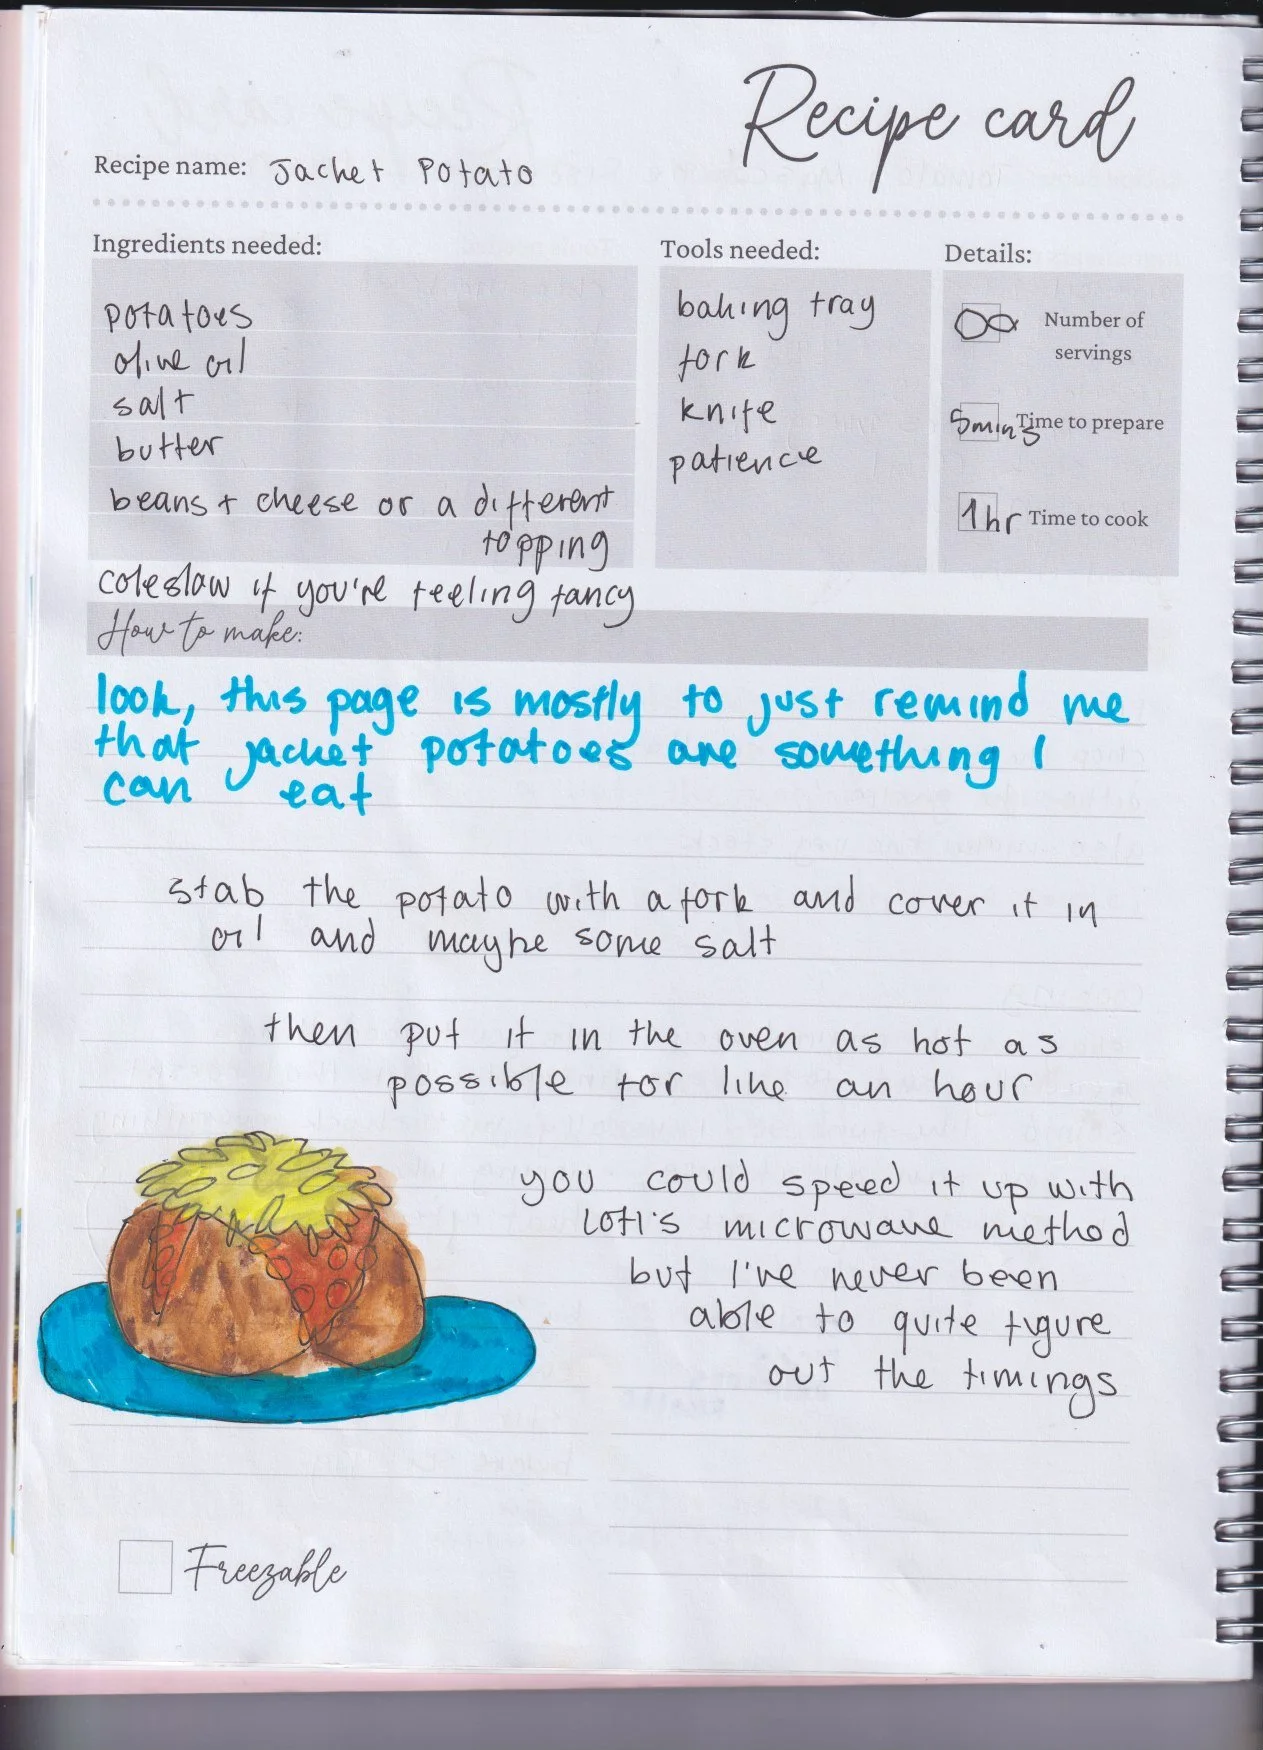 Recipe card
Recipe name: Jacket Potato
Ingredients needed:
potatoes
olive oil
salt
butter
beans + cheese or a different
topping
coleslaw if you're feeling fancy
Tools needed:
baking tray
fork
knife
patience
Details:
∞ Number of
servings
5mins Time to prepare
1hr Time to cook
How to make:
look, this page is mostly to just remind me
that jacket potatoes are something I
can eat
stab the potato with a fork and cover it in
oil and maybe some salt
then put it in the oven as hot as
possible for like an hour
you could speed it up with
Lofi's microwave method
but I've never been
able to quite figure
out the timings
Freezable